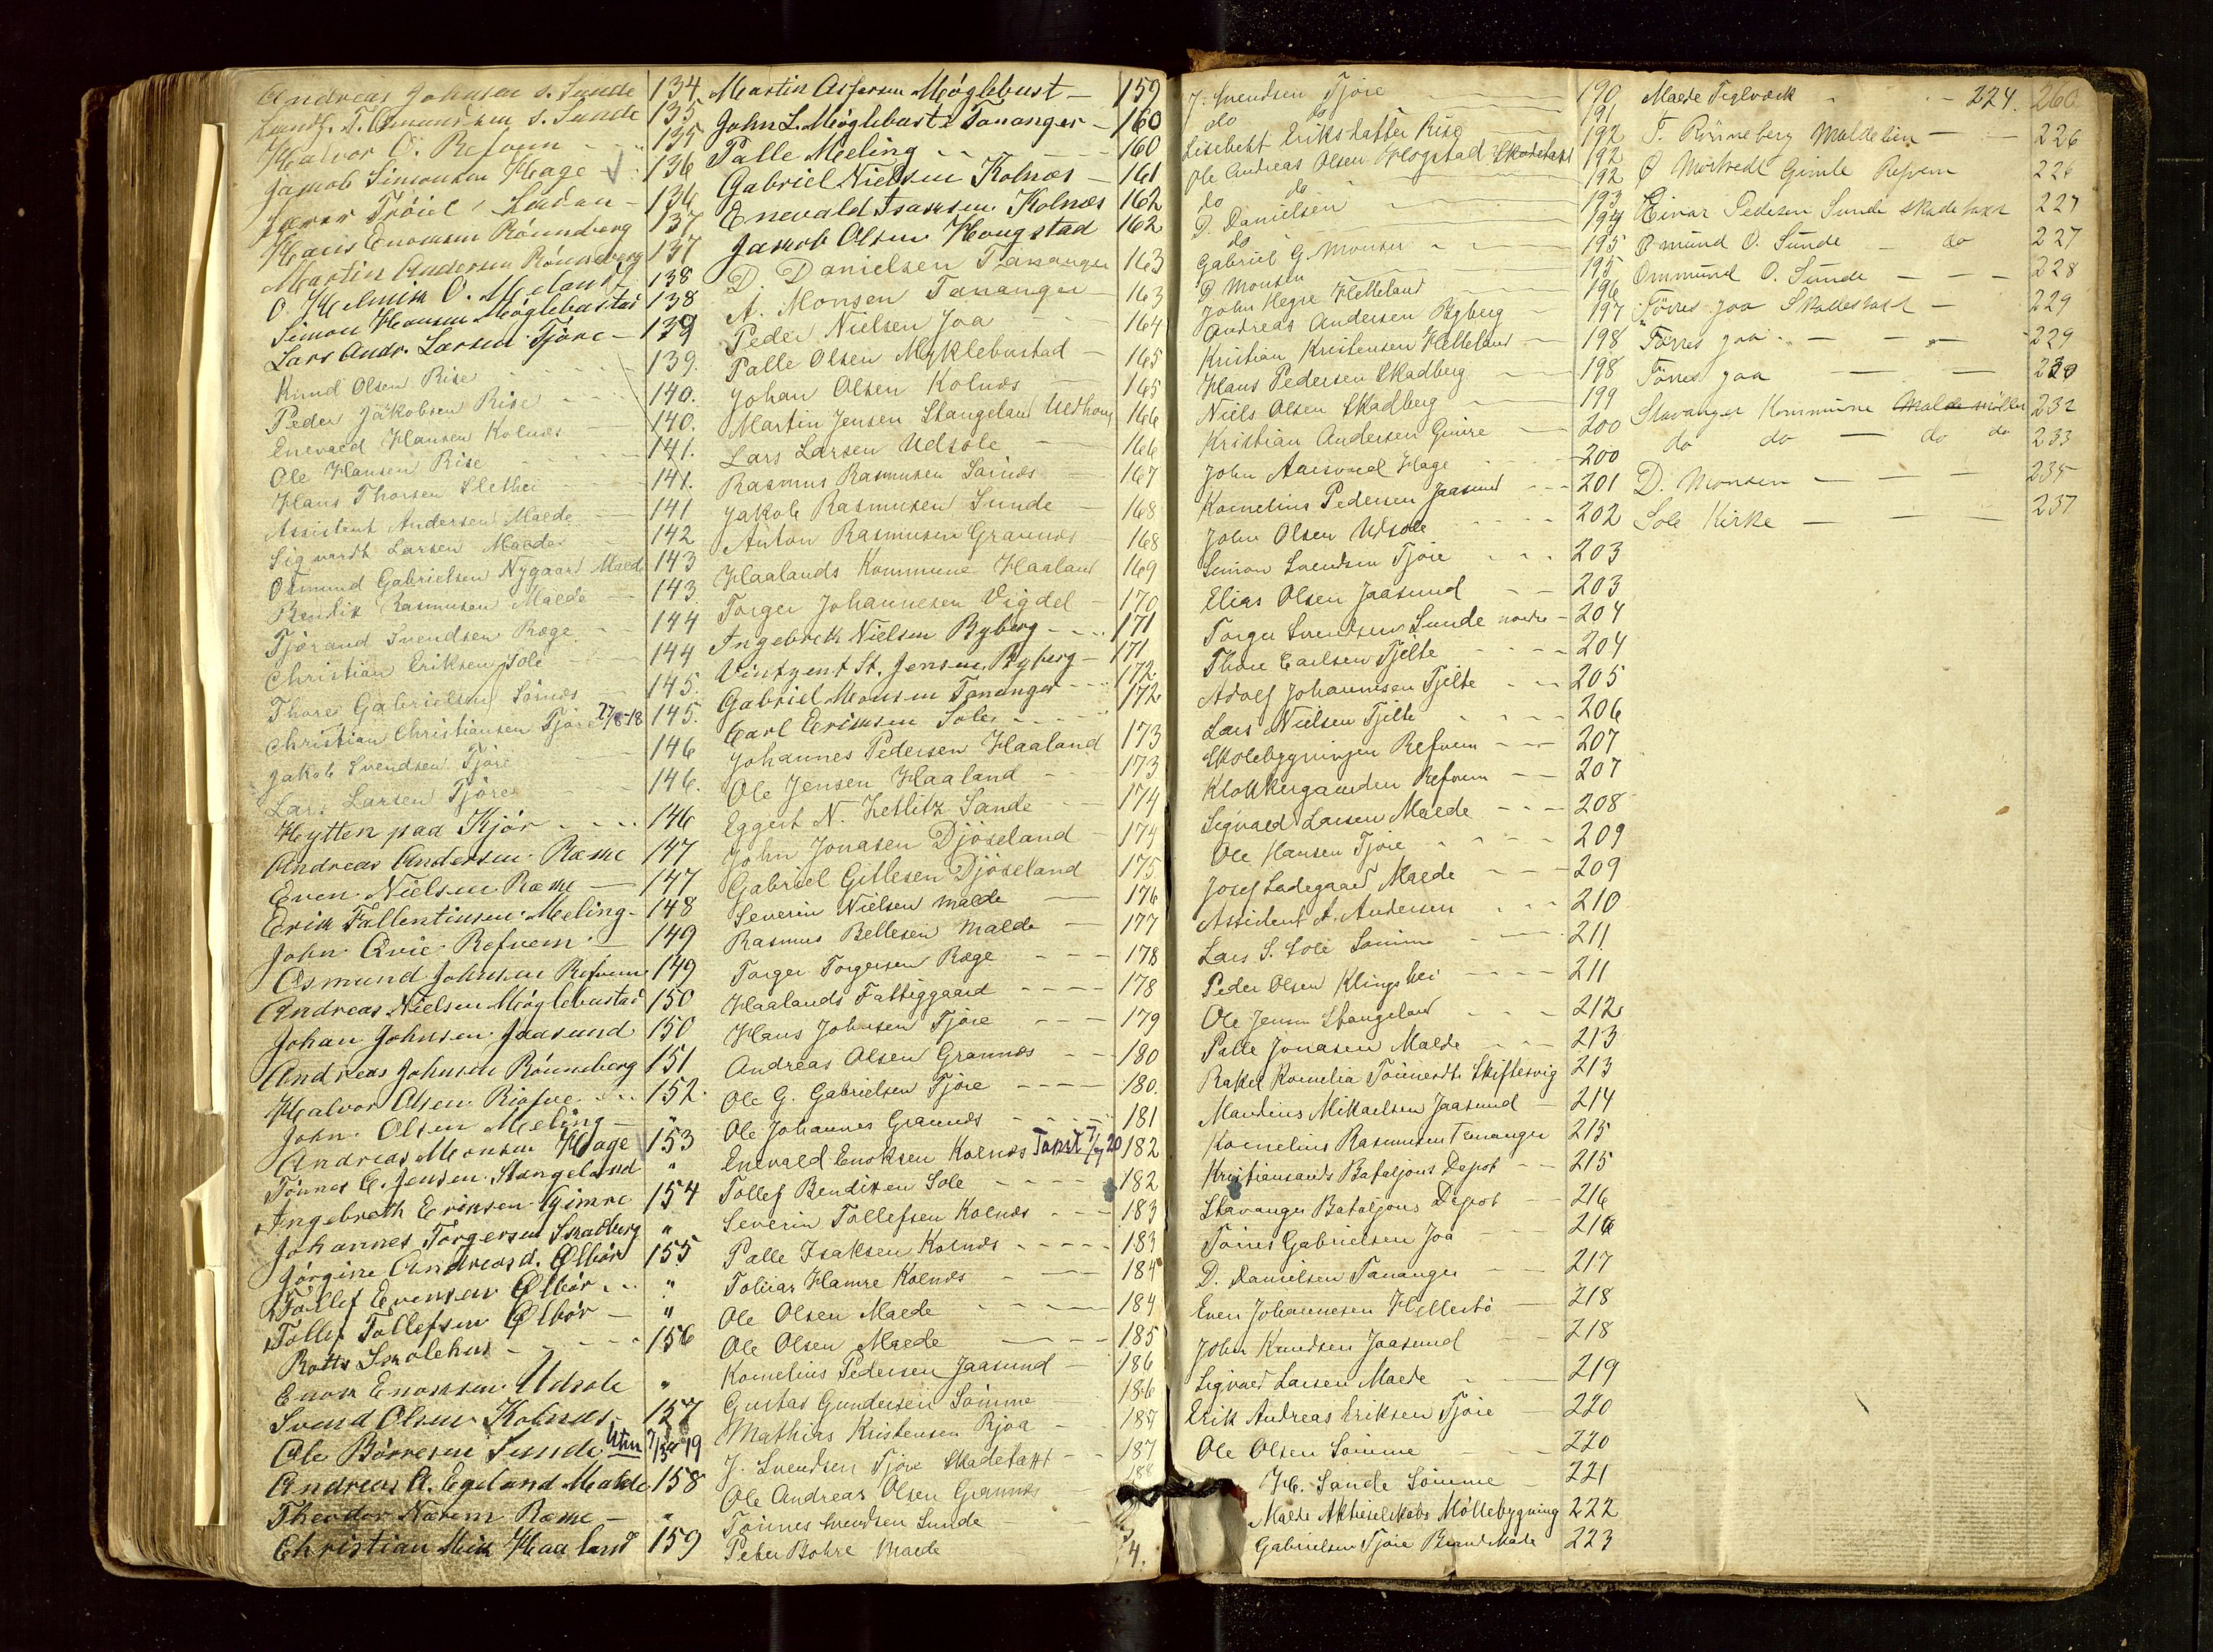 Andreas Johnsen s. Sunde 134
Landh. T. Osmundsen s. Sunde 135
Halvor O. Refvem 135
Jakob Simonsen Hage 136
Lærer Tröiel Ladan 136
Hans Enoksen Rönneberg 137
Martin Andersen Rönneberg 137
O. Helmik O. Meland 138
Simon Hansen Möglebustad 138
Lars Andr. Larsen Tjore 139
Knud Olsen Rise 139.
Peder Jakobsen Rise 140.
Enevald Hansen Kolnæs 140.
Ole Hansen Rise 141.
Hans Thorsen Slethei 141.
Assistent Andersen Malde 141
Sigvardt Larsen Malde 142
Osmund Gabrielsen Nygaard Malde 143
Bendik Rasmusen Malde 143
Tjærand Svendsen Ræge 144
Christian Eriksen Sole 144
Thore Gabrielsen Sörnæs 145.
Christian Christiansen Tjore 27/8-18 145.
Jakob Svendsen Tjore 146
Lars Larsen Tjore 146.
Hytten paa Kjör 146
Andreas Andersen Ræke 147
Even Nielsen Ræke 147
Erik Fallentinsen Meling 148
John Qvie Refvem 149
Osmund Johnsen Refvem 149
Andreas Nielsen Möglebustad 150
Johan Johnsen Jaasund 150
Andreas Johnsen Rönneberg 151
Halvor Olsen Risfue 152.
John Olsen Meling "
Andreas Monsen Hage 153
Tönnes E. Jensen Stangeland "
Ingebreth Eriksen Gimre 154
Johannes Torgersen Skadberg "
Jörgine Andreasd. Ølbör 155
Tollef Evensen Ølbör "
Tollef Tollefsen Ølbör "
Rotts Skolehus 156
Enok Enoksen Udsole "
Svend Olsen Kolnæs 157
Ole Börresen Sunde Utm 7/5 19
Andreas A. Egeland Malde 158
Theodor Nærem Ræke "
Christian Mik Haaland 159
Martin Asersen Möglebust 159
John L. Möglebust Tananger 160
Palle Meling 160
Gabriel Nielsen Kolnæs 161
Enevald Isaksen Kolnæs 162
Jakob Olsen Hougstad 162
D. Danielsen Tananger 163
A. Monsen Tananger 163
Peder Nielsen Joa 164
Palle Olsen Myklebustad 165
Johan Olsen Kolnæs 165
Martin Jensen Stangeland Uethoug 166
Lars Larsen Udsole 166
Rasmus Rasmusen Sörnæs 167
Jakob Rasmusen Sunde 168
Anton Rasmusen Grannæs 168
Haalands Kommune Haaland 169
Torger Johannesen Vigdel 170
Ingebrek Nielsen Ryberg 171
Vintzent St. Jensen Ryberg 171
Gabriel Monsen Tananger 172
Carl Eriksen Sole 172
Johannes Pedersen Haaland 173
Ole Jensen Haaland 173
Eggert N. Hetlitz Sande 174
John Jonasen Djöseland 174
Gabriel Gitlesen Djöseland 175
Severin Nielsen Malde 176
Rasmus Bellesen Malde 177
Torger Torgersen Ræge 178
Haalands Fattiggaard 178
Hans Johnsen Tjore 179
Andreas Olsen Grannæs 180
Ole G. Gabrielsen Tjore 180.
Ole Johannes Grannæs 181
Enevald Enoksen Kolnæs Takst 7/9 20 182
Tollef Bendiksen Sole 182
Severin Tollefsen Kolnæs 183
Palle Isaksen Kolnæs 183
Tobias Hamre Kolnæs 184
Ole Olsen Malde 184
Ole Olsen Malde 185
Kornelius Pedersen Jaasund 186
Gustav Gundersen Sömme 186
Mathias Kristensen Rjoa 187
J. Svendsen Tjore Skadetakt 187
Ole Andreas Olsen Grannæs 188
Tönnes Svendsen Sunde
Peter Bohre Malde 4.
J. Svendsen Tjore 190
do do 191
Lisebeht Eriksdatter Rise 192
Ole Andreas Olsen Hogstad Skadetakt 192
do do 192
D. Danielsen 193
do 194
Gabriel G. Monsen 195
D. Monsen 195
John Hegre Helleland 196
Andreas Andersen Ryberg 197
Kristian Kristensen Helleland 198
Hans Pedersen Skadberg 198
Niels Olsen Skadberg 199
Kristian Andersen Gimre 200
John Aaisvoel Hage 200
Kornelius Pedersen Jaasund 201
John Olsen Udsole 202
Simon Svendsen Tjore 203
Elias Olsen Jaasund 203
Torger Svendsen Sunde nordre 204
Thore Carlsen Tjelte 204
Adolf Johannesen Tjelte 205
Lars Nielsen Tjelte 206
Skolebygningen Refvem 207
Klokkergaarden Refvem 207
Sigvald Larsen Malde 208
Ole Hansen Tjore 209
Josef Ladegaard Malde 209
Assistent A. Andersen 210
Lars S. Sole Sömme 211
Peder Olsen Klingshei 211
Ole Jensen Stangeland 212
Palle Jonasen Malde 213
Rakel Kornelia Tönnesdt. Skiftesvig 213
Mandius Mikaelsen Jaasund 214
Kornelius Rasmussen Tananger 215
Kristiansands Bataljons Depot 215
Stavanger Bataljons Depot 216
Törres Gabrielsen Joa 216
D. Danielsen Tananger 217
Even Johannesen Hellestö 218
John Knudsen Jaasund 218
Sigvald Larsen Malde 219
Erik Andreas Eriksen Tjore 220
Ole Olsen Sömme 220
H. Sande Sömme 221
Malde Aktieselskabs Möllebygning 222
Gabrielsen Tjore Brandskade 223
Malde Teglværk 224. 260
T. Rönneberg Maldelien 226
O Mortvedt Gimle Refvem 226
Einar Pedersen Sunde skadetaxt 227
Omund O. Sunde do 227
Ommund O. Sunde 228
Törres Joa Skadestaxt 229
Törres Joa 229
Törres Joa 230
Stavanger Kommune Malde mölle 232
do do do do 233
D. Monsen 235
Sole Kirke 237